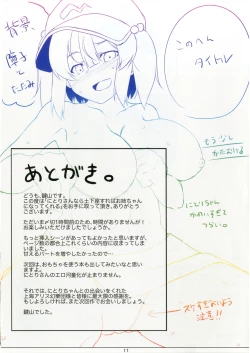 背景
障子
と
たたみ
このへん
タイトル
もう少し
かたむける
にとりちゃん
かわいすぎて
つらい。
あとがき。
どうも、鍵山です。
この度は「にとりさんなら土下座すればお姉ちゃん
になってくれる」をお手に取って頂き、ありがとう
ございます。
ただいま〆切1時間前のため、時間がありません！
お楽しみいただけましたでしょうか？
もっと導入シーンがあってもよかったと思いますが、
ページ数の都合上これくらいの内容に収まってしまい
ました。
甘えるパートを増やしたかったのですけれども…
次回は、おもちゃを使う本も出してみたいなと思いま
すけど、
にとりさんのエロ同量化が止まりません。
それでは、にとりちゃんとの出会いをくれた
上海アリス幻樂団様と皆様に最大限の感謝を。
もしよろしければ、また次回作でお会いしましょう。
鍵山でした。
スケすぎないよう
注意!!
11